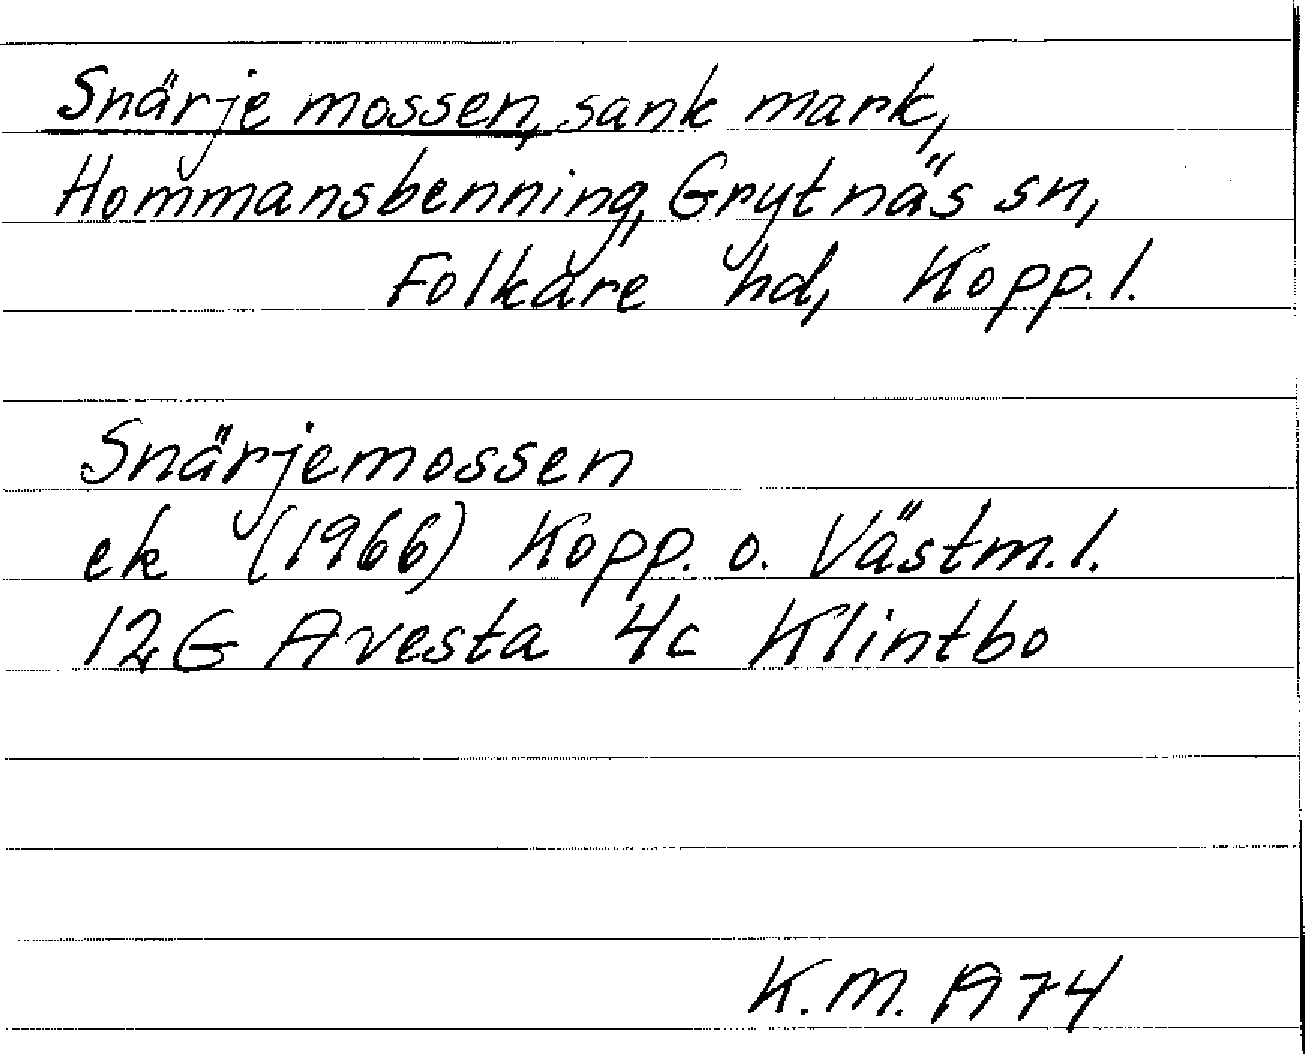 Snärje mossen, sank mark,
Hommansbenning, Grytnäs sn,
Folkare hd, Kopp. l.
Snärjemossen
ek (1966) Kopp. o. Västm. l.
12G Avesta 4c Klintbo
K.M. 1974